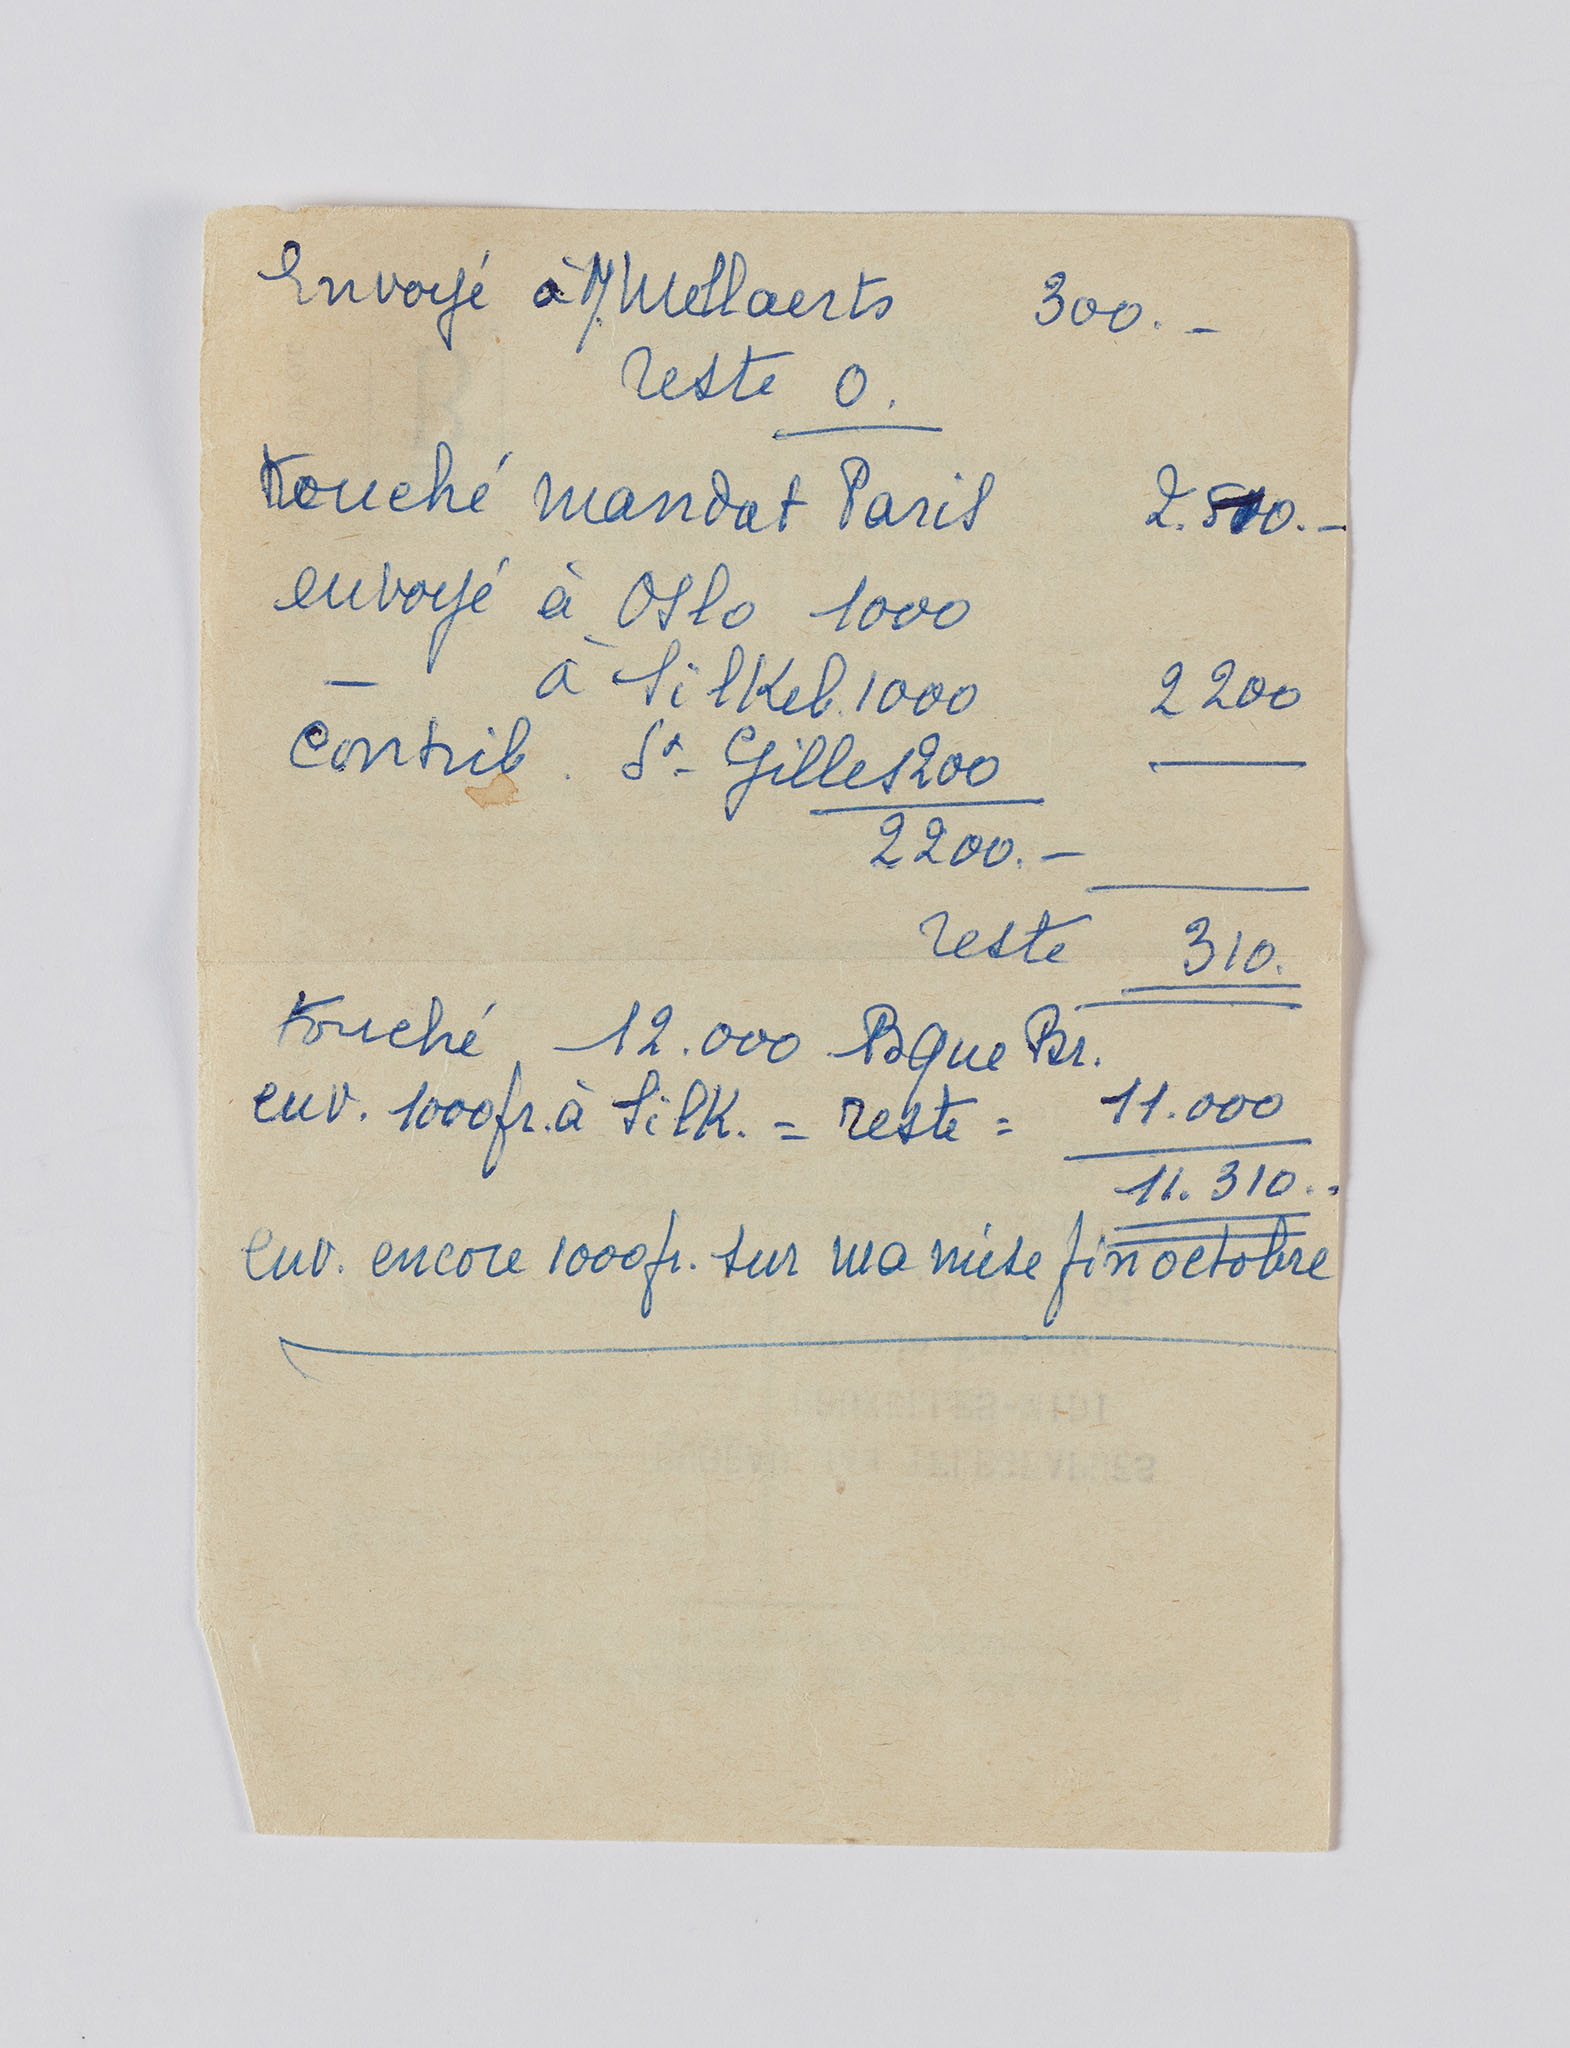 Envoyé à M. Mellaerts 300.-
reste 0.
touché mandat Paris 2.510.-
envoyé à Oslo 1000
— à Silkeb. 1000 2200
Contrib. St-Gilles 200
2200.-
reste 310.
touché 12.000 Bque Br.
env. 1000fr. à Silk. = reste = 11.000
11.310.-
Env. encore 1000fr. sur ma mise fin octobre